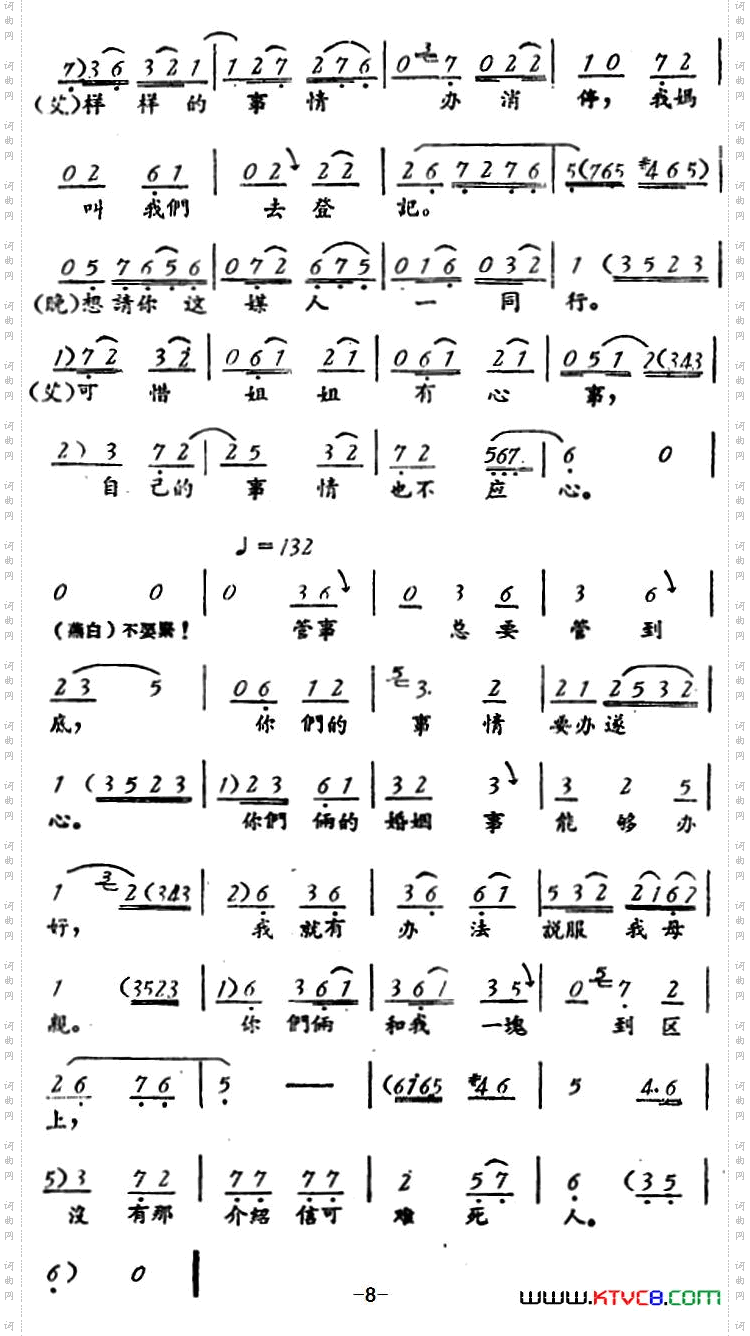 7)36 321 | 127 276 | 0 7 022 | 10 72
(艾)样 样 的 事 情 办 消 停, 我媽
02 61 | 02 22 | 26 7276 | 5(765 #465) |
叫 我們 去 登 記。
05 7656 | 072 675 | 016 032 | 1 (3523
(晚)想 請你 这 媒 人 一 同 行。
1)72 32 | 061 21 | 061 21 | 051 2(343 |
(艾)可 惜 姐 姐 有 心 事,
2) 3 72 | 25 32 | 72 567. | 6 0 |
自 己的 事 情 也不 应 心。
♩=132
0 0 | 0 36 | 0 3 6 | 3 6 |
(燕白)不要緊! 管事 总 要 管 到
23 5 | 06 12 | 5 3. 2 | 21 2532 |
底, 你 們的 事 情 要办 遂
1 (3523 | 1)23 61 | 32 3 | 3 2 5 |
心。 你們 俩的 婚姻 事 能 够 办
1 3 2(343 | 2)6 36 | 36 61 | 532 2167 |
好, 我 就有 办 法 説服 我 母
1 (3523 | 1)6 361 | 361 35 | 0 5 7 2
親。 你 們俩 和我 一塊 到 区
26 76 | 5 — | (6165 #46 | 5 4.6 |
上,
5)3 72 | 77 77 | 2 57 | 6 (35 |
沒 有那 介紹 信可 难 死 人。
6) 0 |
-8-
www.KTVC8.com
词曲网